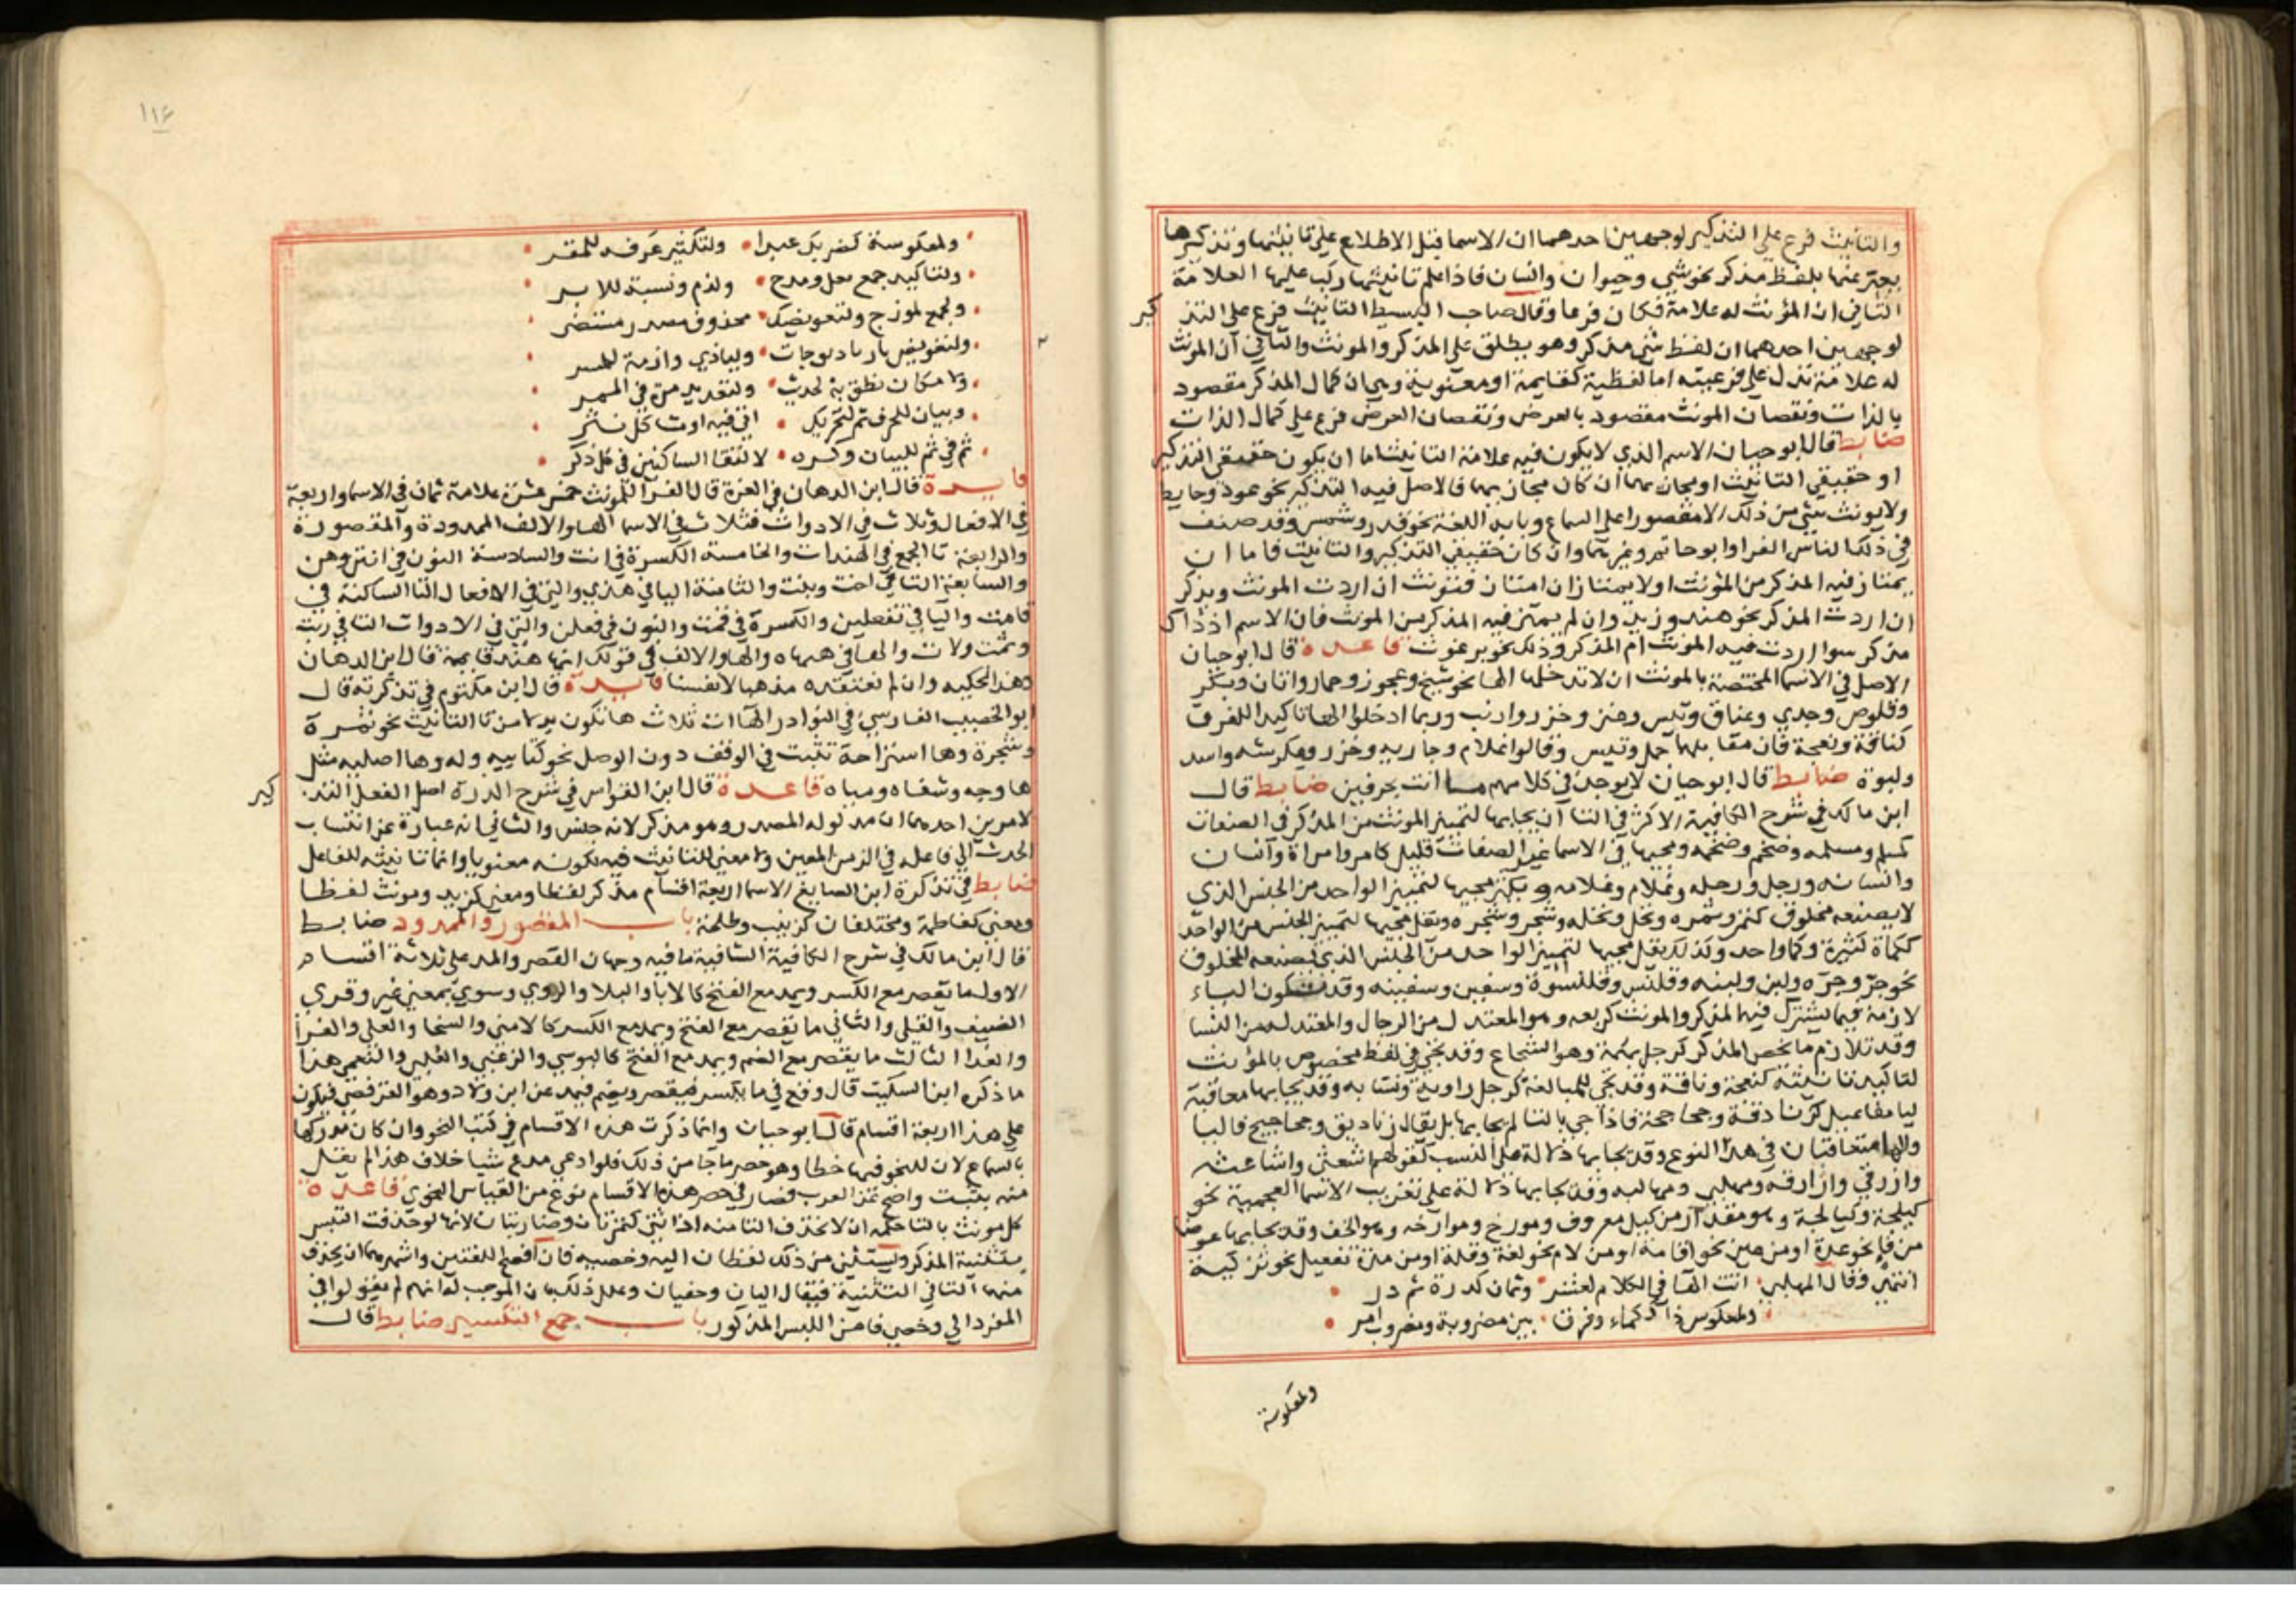 والتانيث فرع علي التذكير لوجهين احدهما ان الاسما قبل الاطلاع علي تانيثها وتذكيرها
يعبر عنها بلفظ مذكر نحو شي وحيوان وانسان فاذا علم تانيثها ركب عليها العلامة
الثاني ان المؤنث له علامة فكان فرعا وقال صاحب البسيط التانيث فرع علي التذ
كير
لوجهين احدهما ان لفظ شي مذكر وهو يطلق علي المذكر والمونث والثاني ان المونث
له علامة تدل علي فرعيته اما لفظية كقايمة او معنوية وهي ان كمال المذكر مقصود
بالذات ونقصان المونث مقصود بالعرض ونقصان العرض فرع علي كمال الذات
ضابط قال ابو حيان الاسم الذي لا يكون فيه علامة التانيث اما ان يكون حقيقي التذكير
او حقيقي التانيث او مجازيهما ان كان مجازيهما فالاصل فيه التذكير نحو عود وحايط
ولا يونث شي من ذلك الا مقصورا علي السماع وبابه اللغة نحو قدر وشمس وقد صنف
في ذلك الناس الفرا وابو حاتم وغيرهما وان كان حقيقي التذكير والتانيث فاما ان
يمتاز فيه المذكر من المؤنث او لا يمتاز ان امتاز فتونث ان اردت المونث ويذكر
ان اردت المذكر نحو هند وزيد وان لم يميز فيه المذكر من المونث فان الاسم اذ ذاك
مذكر سوا اردت فيه المونث ام المذكر وذلك نحو برغوث قاعدة قال ابو حيان
الاصل في الاسما المختصة بالمونث ان لا تدخلها الها نحو شيخ وعجوز وحمار واتان وبكر
وقلوص وجدي وعناق وتيس وعنز وخزر وارنب وربما ادخلوا الها تاكيدا للفرق
كناقة ونعجة فان مقابلهما جمل وتيس وقالوا غلام وجاريه وخزر وعكرشه واسد
ولبوة ضابط قال ابو حيان لا يوجد في كلامهم ما انث بحرفين ضابط قال
ابن مالك في شرح الكافية الاكثر في التا ان يجا بها لتمييز المونث من المذكر في الصفات
كمسلم ومسلمه وضخم وضخمه ومجيها في الاسما غير الصفات قليل كامرو وامراة وانسان
وانسانه ورجل ورجله وغلام وغلامه ويكثر مجيها لتمييز الواحد من الجنس الذي
لا يصنعه مخلوق كتمر وتمره ونخل ونخله وشجر وشجره ويقل مجيها لتمييز الجنس من الواحد
ككماة كثيرة وكما واحد وكذلك يقل مجيها لتمييز الواحد من الجنس الذي يصنعه المخلوق
نحو جر وجره ولبن ولبنه وقلنس وقلنسوة وسفين وسفينه وقد تكون الباء
لازمة فيما يشترك فيه المذكر والمونث كربعه وهو المعتدل من الرجال والمعتدله من النسا
وقد تلازم ما يخص المذكر كرجل بهمة وهو الشجاع وقد تجي في لفظ مخصوص بالمؤنث
لتاكيد تانيثه كنعجة وناقة وقد تجي للمبالغة كرجل راوية ونسابه وقد يجا بها معاقبة
ليا مفاعيل كزنادقة وجحاجحة فاذا جي بالتا لم يجا بها بل يقال زناديق وجحاجيح فاليا
والها متعاقبتان في هذا النوع وقد يجا بها دلالة علي النسب كقولهم اشعثي واشاعثه
وازرقي وازارقه ومهلبي ومهالبه وقد يجا بها دلالة علي تعريب الاسما العجمية نحو
كيلجة وكيالجة وهو مقدار من كيل معروف وموزج وموازجه وهو الخف وقد يجا بها عوضا
من فا نحو عدة او من عين نحو اقامة او من لام نحو لغة وقلة او من مدة تفعيل نحو تزكية
انتهي وقال المهلبي انت الها في الكلام لعشر وثمان كدرة ثم در
ولمعكوس ذا ككماء وفرق بين مضروبة ومضروب امر
ولمعكوسة
١١٤
ولمعكوسة كضربك عبدا ولتكثير غرفه للمقر
ولتاكيد جمع بعل ومدح ولذم ونسبة للابر
ولجمع لموزج ولتعويضك محذوف مصدر مستضر
ولامكان نطق بة لحدث ولتعديد مرة في الممر
وبيان للحرف ثم لتحريك
ثم في ثم للبيان وكسره لالتقا الساكنين في كل ذكر
فايدة قال ابن الدهان في الغرة قال الفرا للمونث خمس عشرة علامة ثمان في الاسما واربعة
في الافعال وثلاث في الادوات فثلاث في الاسما الها والالف الممدودة والمقصورة
والرابعة تا الجمع في الهندات والخامسة الكسرة في انت والسادسة النون في انتن وهن
والسابعة التا في اخت وبنت والثامنة اليا في هذي والتي في الافعال التا الساكنة في
قامت واليا في تفعلين والكسرة في قمت والنون في فعلن والتي في الادوات التا في ربت
وثمت ولات والها في هيهاه والها والالف في قولك انها هند قايمة قال ابن الدهان
وهذا حكيته وان لم نعتقده مذهبا لانفسنا فايدة قال ابن مكتوم في تذكرته قال
ابو الخصيب الفارسي في النوادر الهاات ثلاث ها تكون بدلا من تا التانيث نحو تمرة
وشجرة وها استراحة تثبت في الوقف دون الوصل نحو كتابيه وله وها اصليه مثل
ها وجه وشفاه ومياه قاعدة قال ابن القواس في شرح الدرة اصل الفعل التذ
كير
لامرين احدهما ان مدلوله المصدر وهو مذكر لانه جنس والثاني انه عبارة عن انتساب
الحدث الي فاعله في الزمن المعين ولا معني للتانيث فيه لكونه معنويا وانما تانيثه للفاعل
ضابط في تذكرة ابن الصايغ الاسما اربعة اقسام مذكر لفظا ومعني كزيد ومونث لفظا
ومعني كفاطمة ومختلفان كزينب وطلحة باب المقصور والممدود ضابط
قال ابن مالك في شرح الكافية الشافية ما فيه وجهان القصر والمد علي ثلاثة اقسام
الاول ما يقصر مع الكسر ويمد مع الفتح كالايا والبلا والروي وسوي بمعني غير وقري
الضيف والقلي والثاني ما يقصر مع الفتح ويمد مع الكسر كالاضي والسحا والعلي والغرا
والغدا الثالث ما يقصر مع الضم ويمد مع الفتح كالبوسي والرغبي والعليا والنعمي هذا
ما ذكره ابن السكيت قال وقع في ما يكسر فيقصر ويضم فيمد عن ابن ولاد وهو القرفصي فيكون
علي هذا اربعة اقسام قال ابو حيان وانما ذكرت هذه الاقسام في كتب النحو وان كان مدركها
بالسماع لان للنحو فيها خطا وهو حصر ما جا من ذلك فلو ادعي مدع شيا خلاف هذا لم يقبل
منه بثبت واضح عن العرب فصار في حصر هذه الاقسام نوع من القياس النحوي قاعدة
كل مونث بالتا حكمه ان لا تحذف التا منه اذا ثني كتمرتان وضاربتان لانها لو حذفت التبس
بتثنية المذكر ويستثني من ذلك لفظان اليه وخصيه فان افصح اللغتين واشهرهما ان يحذف
منهما التا في التثنية فيقال اليان وخصيان وعلل ذلك بان الموجب له انهم لم يقولوا في
المفرد الي وخصي فامن اللبس المذكور باب جمع التكسير ضابط قال